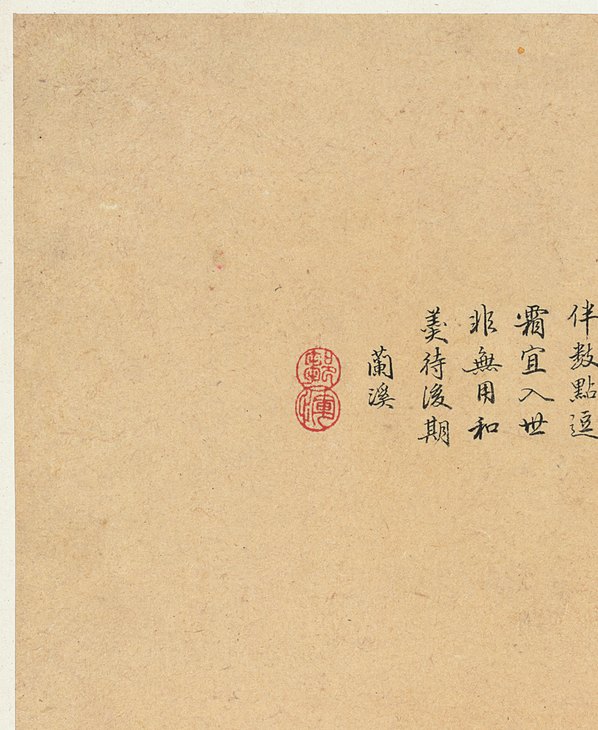 伴數點逗
霜宜入世
非無用和
羮待後期
蘭溪